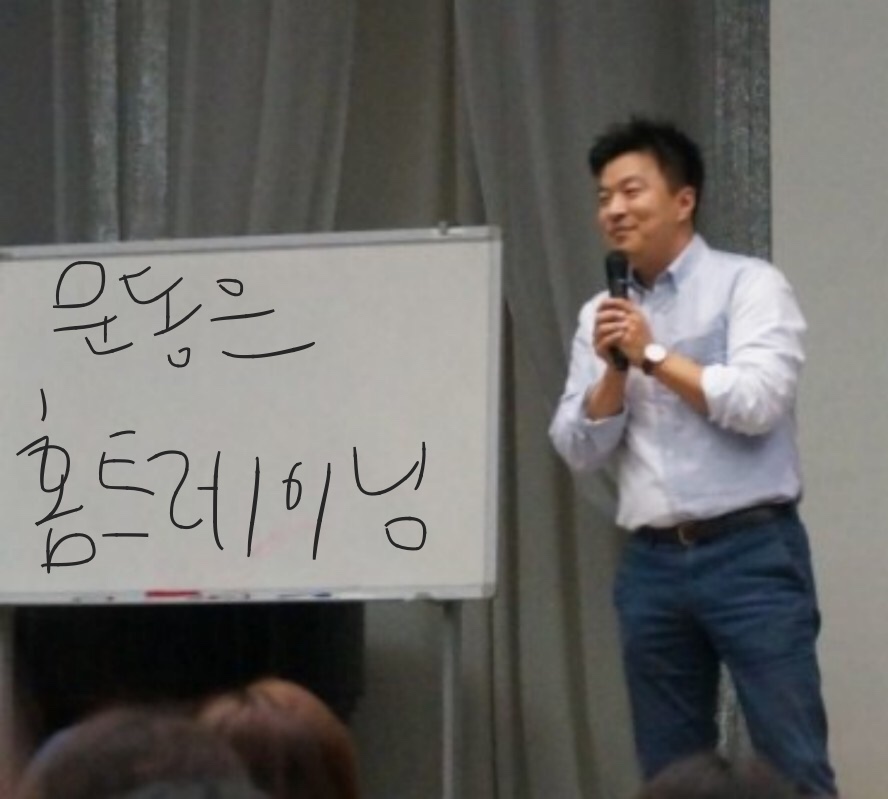 운동은
홈트레이닝